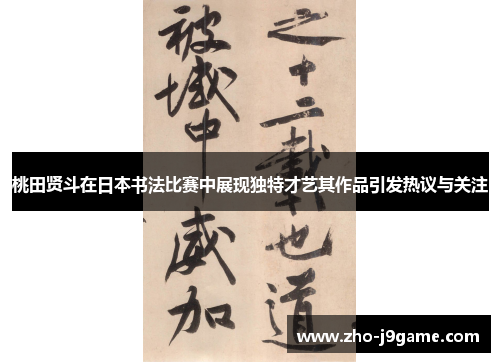 之十二載也道
被域中威加
桃田贤斗在日本书法比赛中展现独特才艺其作品引发热议与关注
www.zho-j9game.com